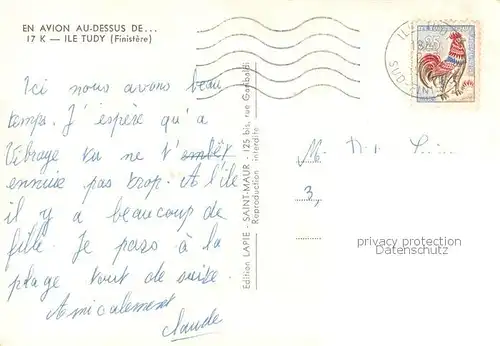 EN AVION AU-DESSUS DE...
17 K — ILE TUDY (Finistère)
Ici nous avons beau
temps. J'espère qu'a
Vibraye tu ne t'embêt
ennuie pas trop. A l'île
il y a beaucoup de
fille. Je pars à la
plage tout de suite.
Amicalement
Claude
Edition LAPIE - SAINT-MAUR - 125 bis, rue Garibaldi
Reproduction interdite
M.
3,
privacy protection
Datenschutz